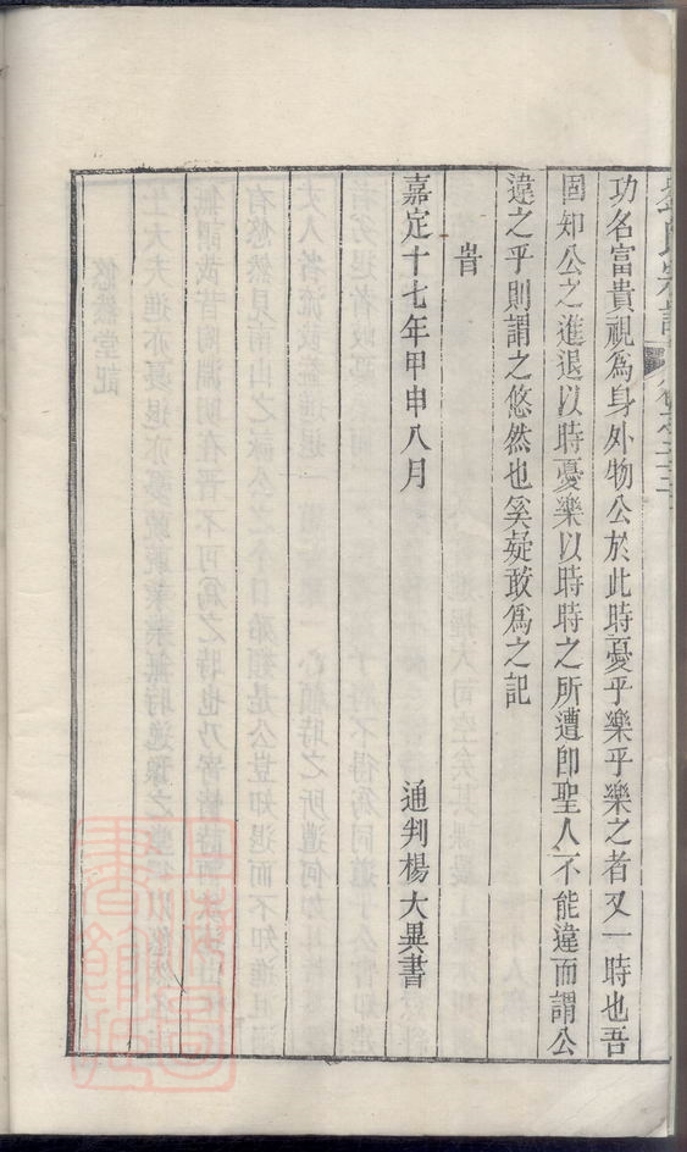 氏宗譜 卷之三十三
功名富貴視爲身外物公於此時憂乎樂乎樂之者又一時也吾
固知公之進退以時憂樂以時時之所遭卽聖人不能違而謂公
違之乎則謂之悠然也奚疑敢爲之記
旹
嘉定十七年甲申八月 通判楊大異書